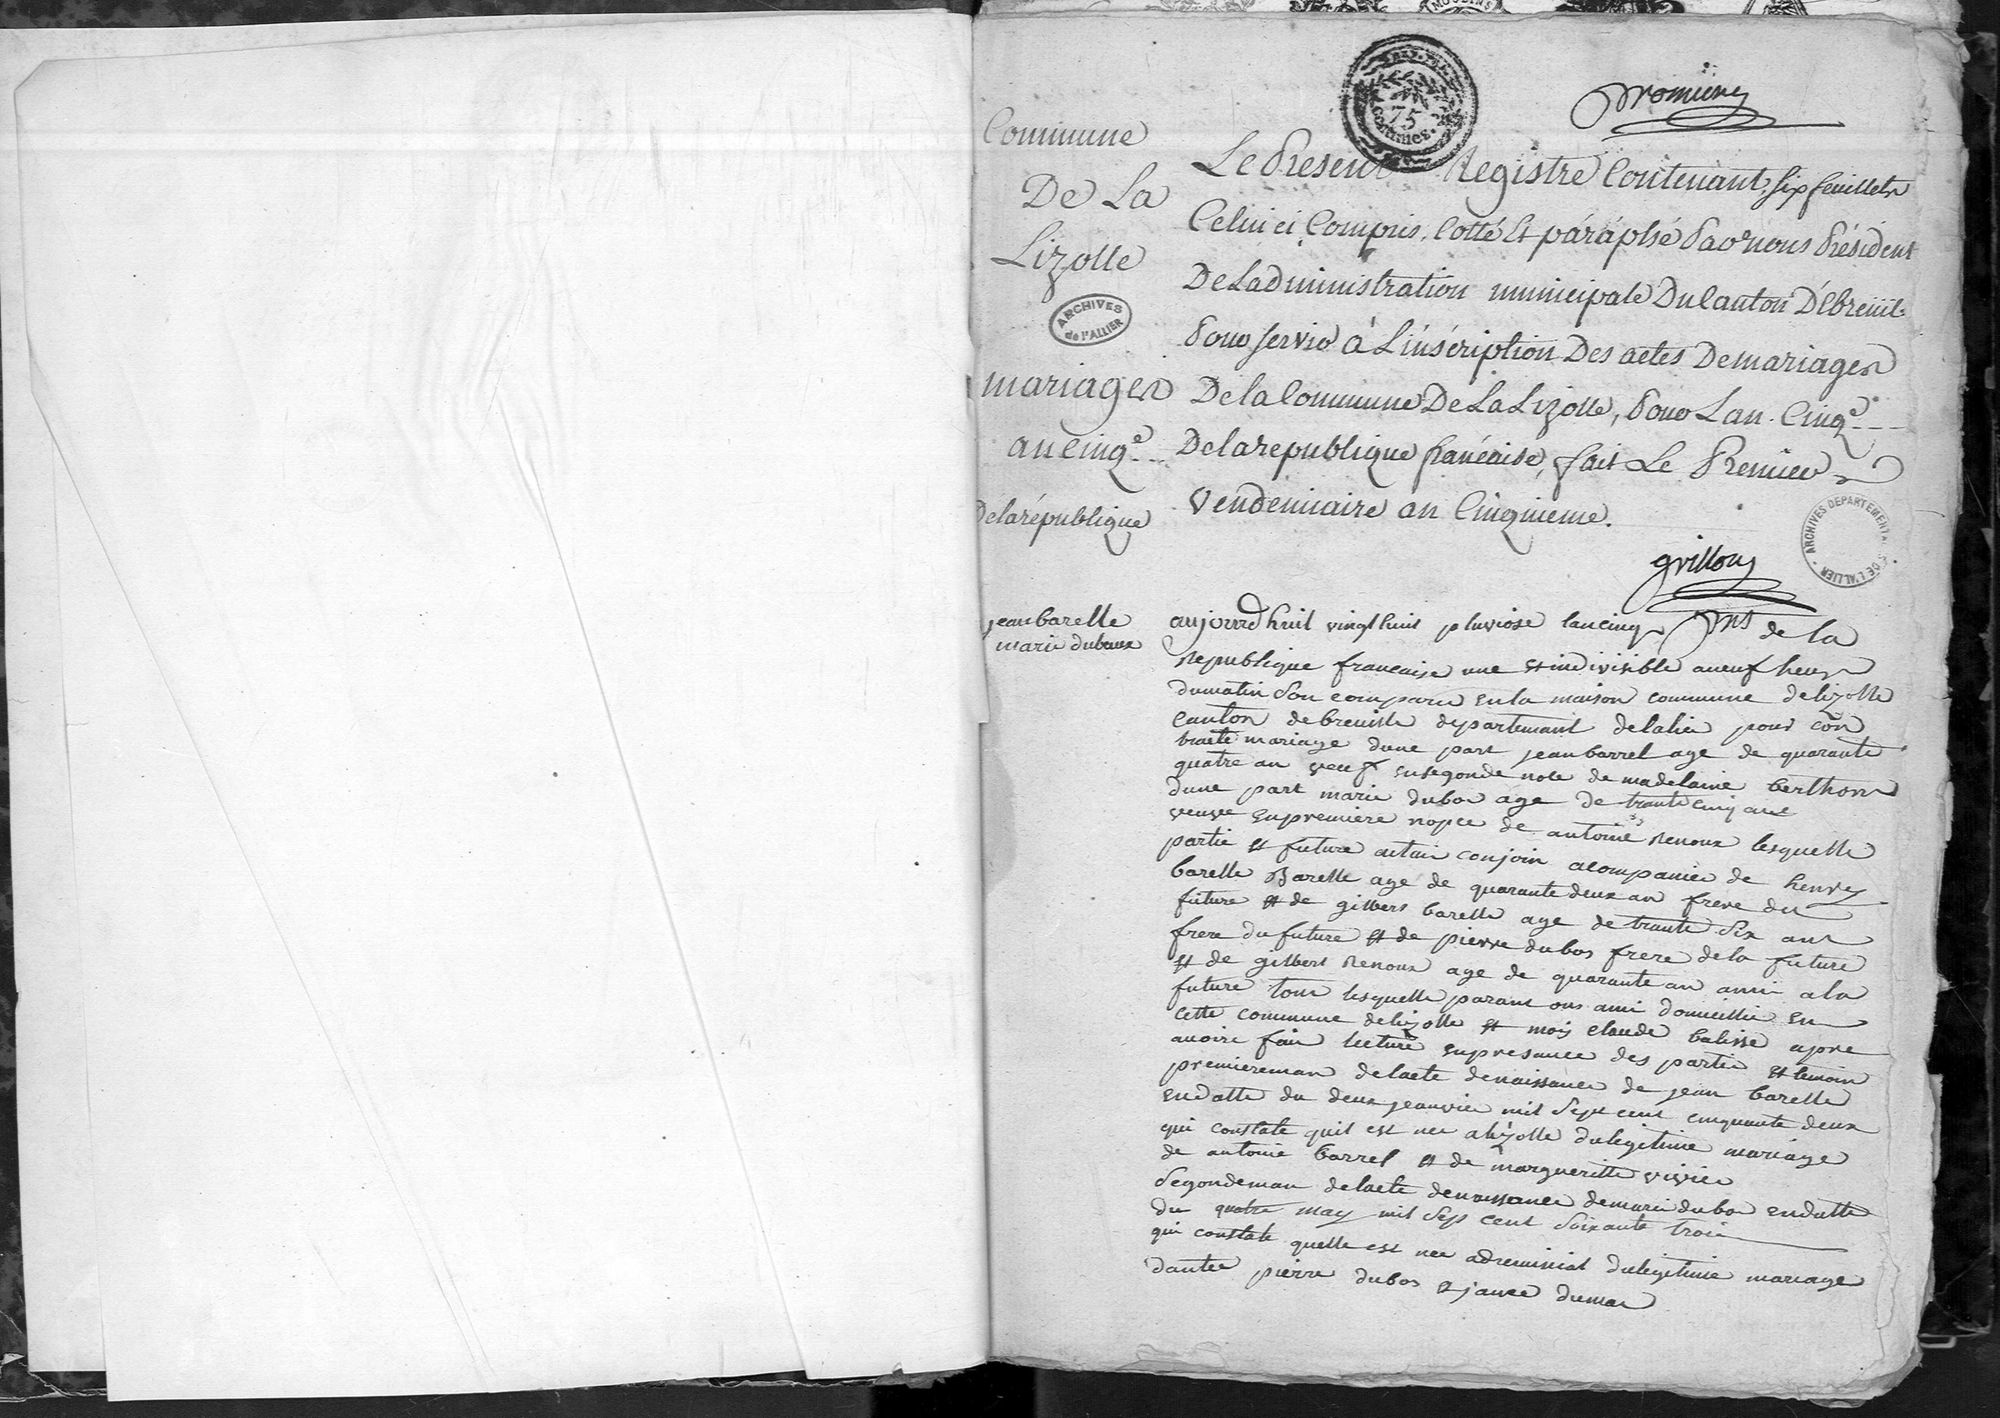 premiere
75
Centimes
Commune
De La
Lizolle
ARCHIVES
de l'ALLIER
mariages
an Cinq.e
Dela république
Le Present Registre Contenant six feuillets
Celui ci Compris, Cotté Et paraphé Par nous Président
De Ladministration municipale Du Canton D'Ebreuil
Pour servir à L'inscription Des actes De mariages
De la Commune De La Lizolle, Pour Lan Cinq.e
De la republique francaise, fait Le Premier
Vendemiaire an Cinquieme.
grillon
ARCHIVES DEPARTEMENTALES DE L'ALLIER
jean barelle
marie duboux
aujourdhuit vingt huit pluviose lan cinq de la
Republique francaise une et indivisible a neuf heur
du matin son comparu en la maison commune de lizolle
canton debreuille departemant delalié pour con
tracte mariage dune part jean barrel age de quarante
quatre an veuf en segonde noce de madelaine berthon
dune part marie dubos age de trante cinq ans
veuve en premiere nopce de antoine Renoux lesquelle
partie et future conjoin acompanier de henry
barelle Barelle age de quarante deux an frere du
future et de gilbers barelle age de trante six ans
frere du future et de pierre dubos frere de la future
et de gilbert Renoux age de quarante an ami a la
future tous lesquelle parant ous ami domicillie en
cette commune de lizolle et moy claude balisse apre
avoire fair lecture en presance des partie et temoin
premiereman de lacte de naissance de jean barelle
en datte du deux jeanvie mil sept cent cinquante deux
qui constate quil est nee a lizolle du legitime mariage
de antoine barrel et de margueritte vivier
Segondeman de lacte de naissance de marie dubos en datte
du quatre may mil sept cent soixante trois
qui constate quelle est nee a du legitime mariage
pierre dubos et jance dumas